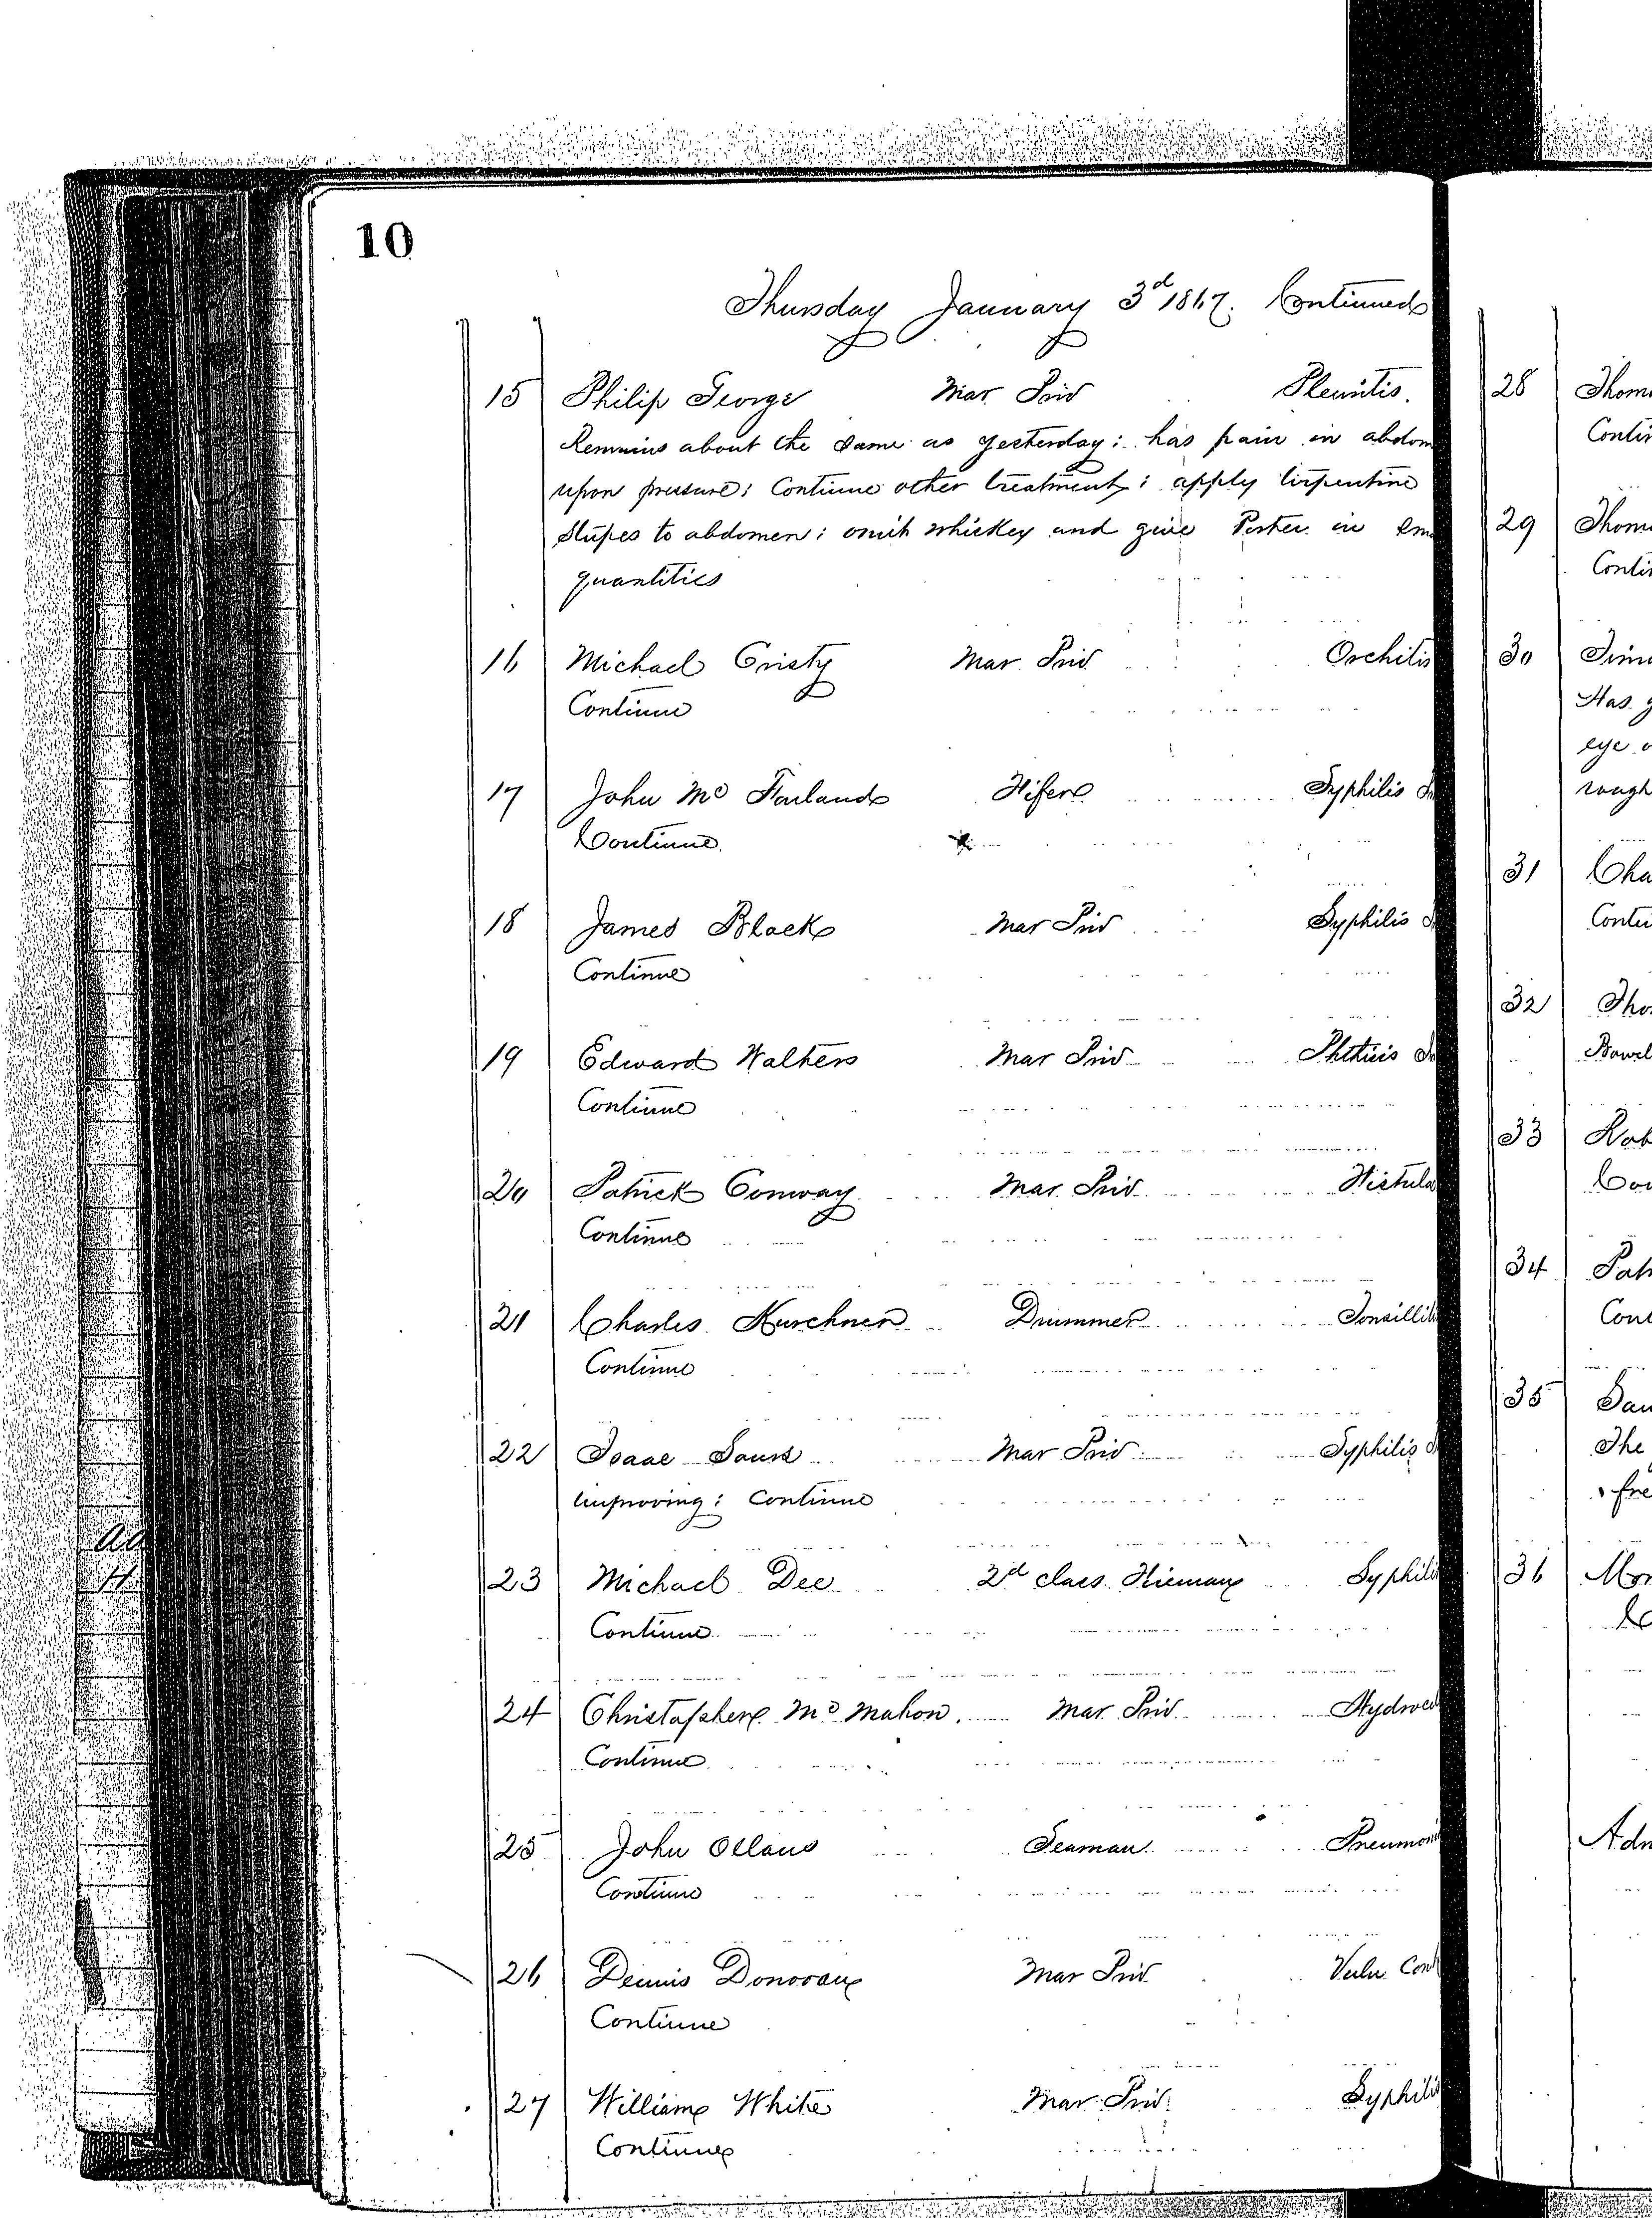 10
Thursday January 3d 1867. Continued
15 Philip George Mar Priv Pleuritis.
Remains about the same as yesterday: has pain in abdom
upon pressure: Continue other treatment: apply tirpentine
Stupes to abdomen: omit whiskey and give Porter in sm
quantities
16 Michael Cristy Mar. Priv Orchitis
Continue
17 John Mc Farland Fifer Syphilis
Continue.
18 James Black Mar Priv Syphilis
Continue
19 Edward Walters Mar Priv Phthisis
Continue
20 Patrick Conway Mar Priv Fistula
Continue
21 Charles Kurchner Drummer Tonsillit
Continue
22 Isaac Mar Priv Syphilis
Improving: Continue
23 Michael Dee 2d class Fireman Syphili
Continue
24 Christopher Mc Mahon. Mar Priv Hydroce
Continue
25 John Ollaus Seaman Pneumon
Continue
26 Dennis Donovan Mar Priv Vuln. Con
Continue
27 William White Mar Priv. Syphili
Continue
28 Thom
Contin
29 Thom
Contin
30
Has g
eye o
rough
31 Cha
Contin
32 Tho
Bowel
33 Rob
Con
34 Pat
Cont
35
The
fre
36 Mor
Adm